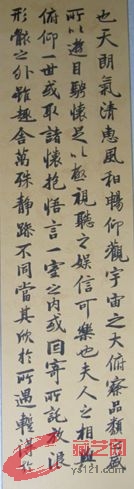 也天朗氣清惠風和暢仰觀宇宙之大俯察品類盛
所以遊目騁懷足以極視聽之娛信可樂也夫人之相與
俯仰一世或取諸懷抱悟言一室之內或因寄所託放浪
形骸之外雖趣舍萬殊靜躁不同當其欣於所遇得於
藏艺网